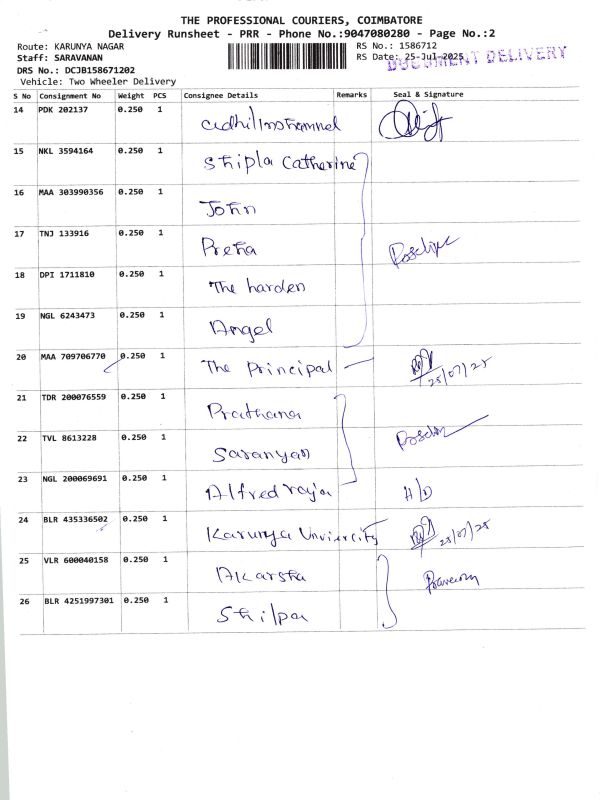 THE PROFESSIONAL COURIERS, COIMBATORE
Delivery Runsheet - PRR - Phone No.:9047080280 - Page No.:2
Route: KARUNYA NAGAR
Staff: SARAVANAN
DRS No.: DCJB158671202
Vehicle: Two Wheeler Delivery
RS No.: 1586712
RS Date: 25-Jul-2025
DOCUMENT DELIVERY
S No Consignment No Weight PCS Consignee Details Remarks Seal & Signature
14 PDK 202137 0.250 1
15 NKL 3594164 0.250 1 Shipla Catherine
16 MAA 303990356 0.250 1 John
17 TNJ 133916 0.250 1
18 DPI 1711810 0.250 1 The harden
19 NGL 6243473 0.250 1 Angel
20 MAA 709706770 0.250 1 The Principal 25/07/25
21 TDR 200076559 0.250 1 Prathana
22 TVL 8613228 0.250 1 Saranyan
23 NGL 200069691 0.250 1 Alfred raja
24 BLR 435336502 0.250 1 Karunya Unviercity 25/07/25
25 VLR 600040158 0.250 1 Akarsha
26 BLR 4251997301 0.250 1 Shilpa